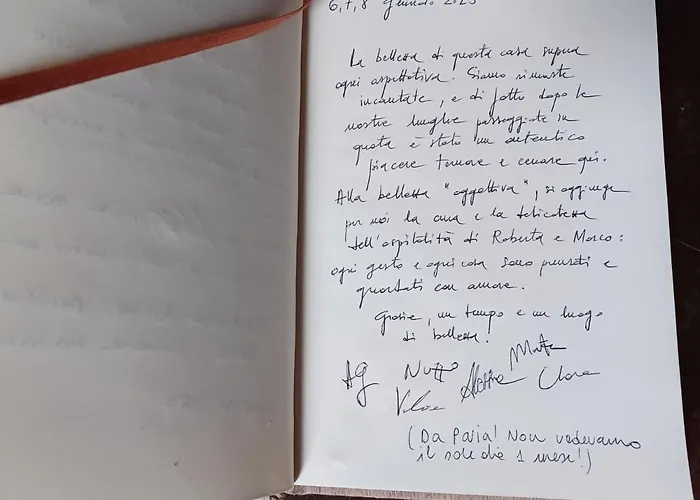 6, 7, 8 Gennaio 2023
La bellezza di questa casa supera
ogni aspettativa. Siamo rimaste
incantate, e di fatto dopo le
nostre lunghe passeggiate in
quota è stato un autentico
piacere tornare e cenare qui.
Alla bellezza "oggettiva", si aggiunge
per noi la cura e la delicatezza
dell'ospitalità di Roberta e Marco:
ogni gesto e ogni cosa sono pensati e
guardati con amore.
Grazie, un tempo e un luogo
di bellezza.
AG
Clara
(Da Pavia! Non vedevamo
il sole da 1 mese!)